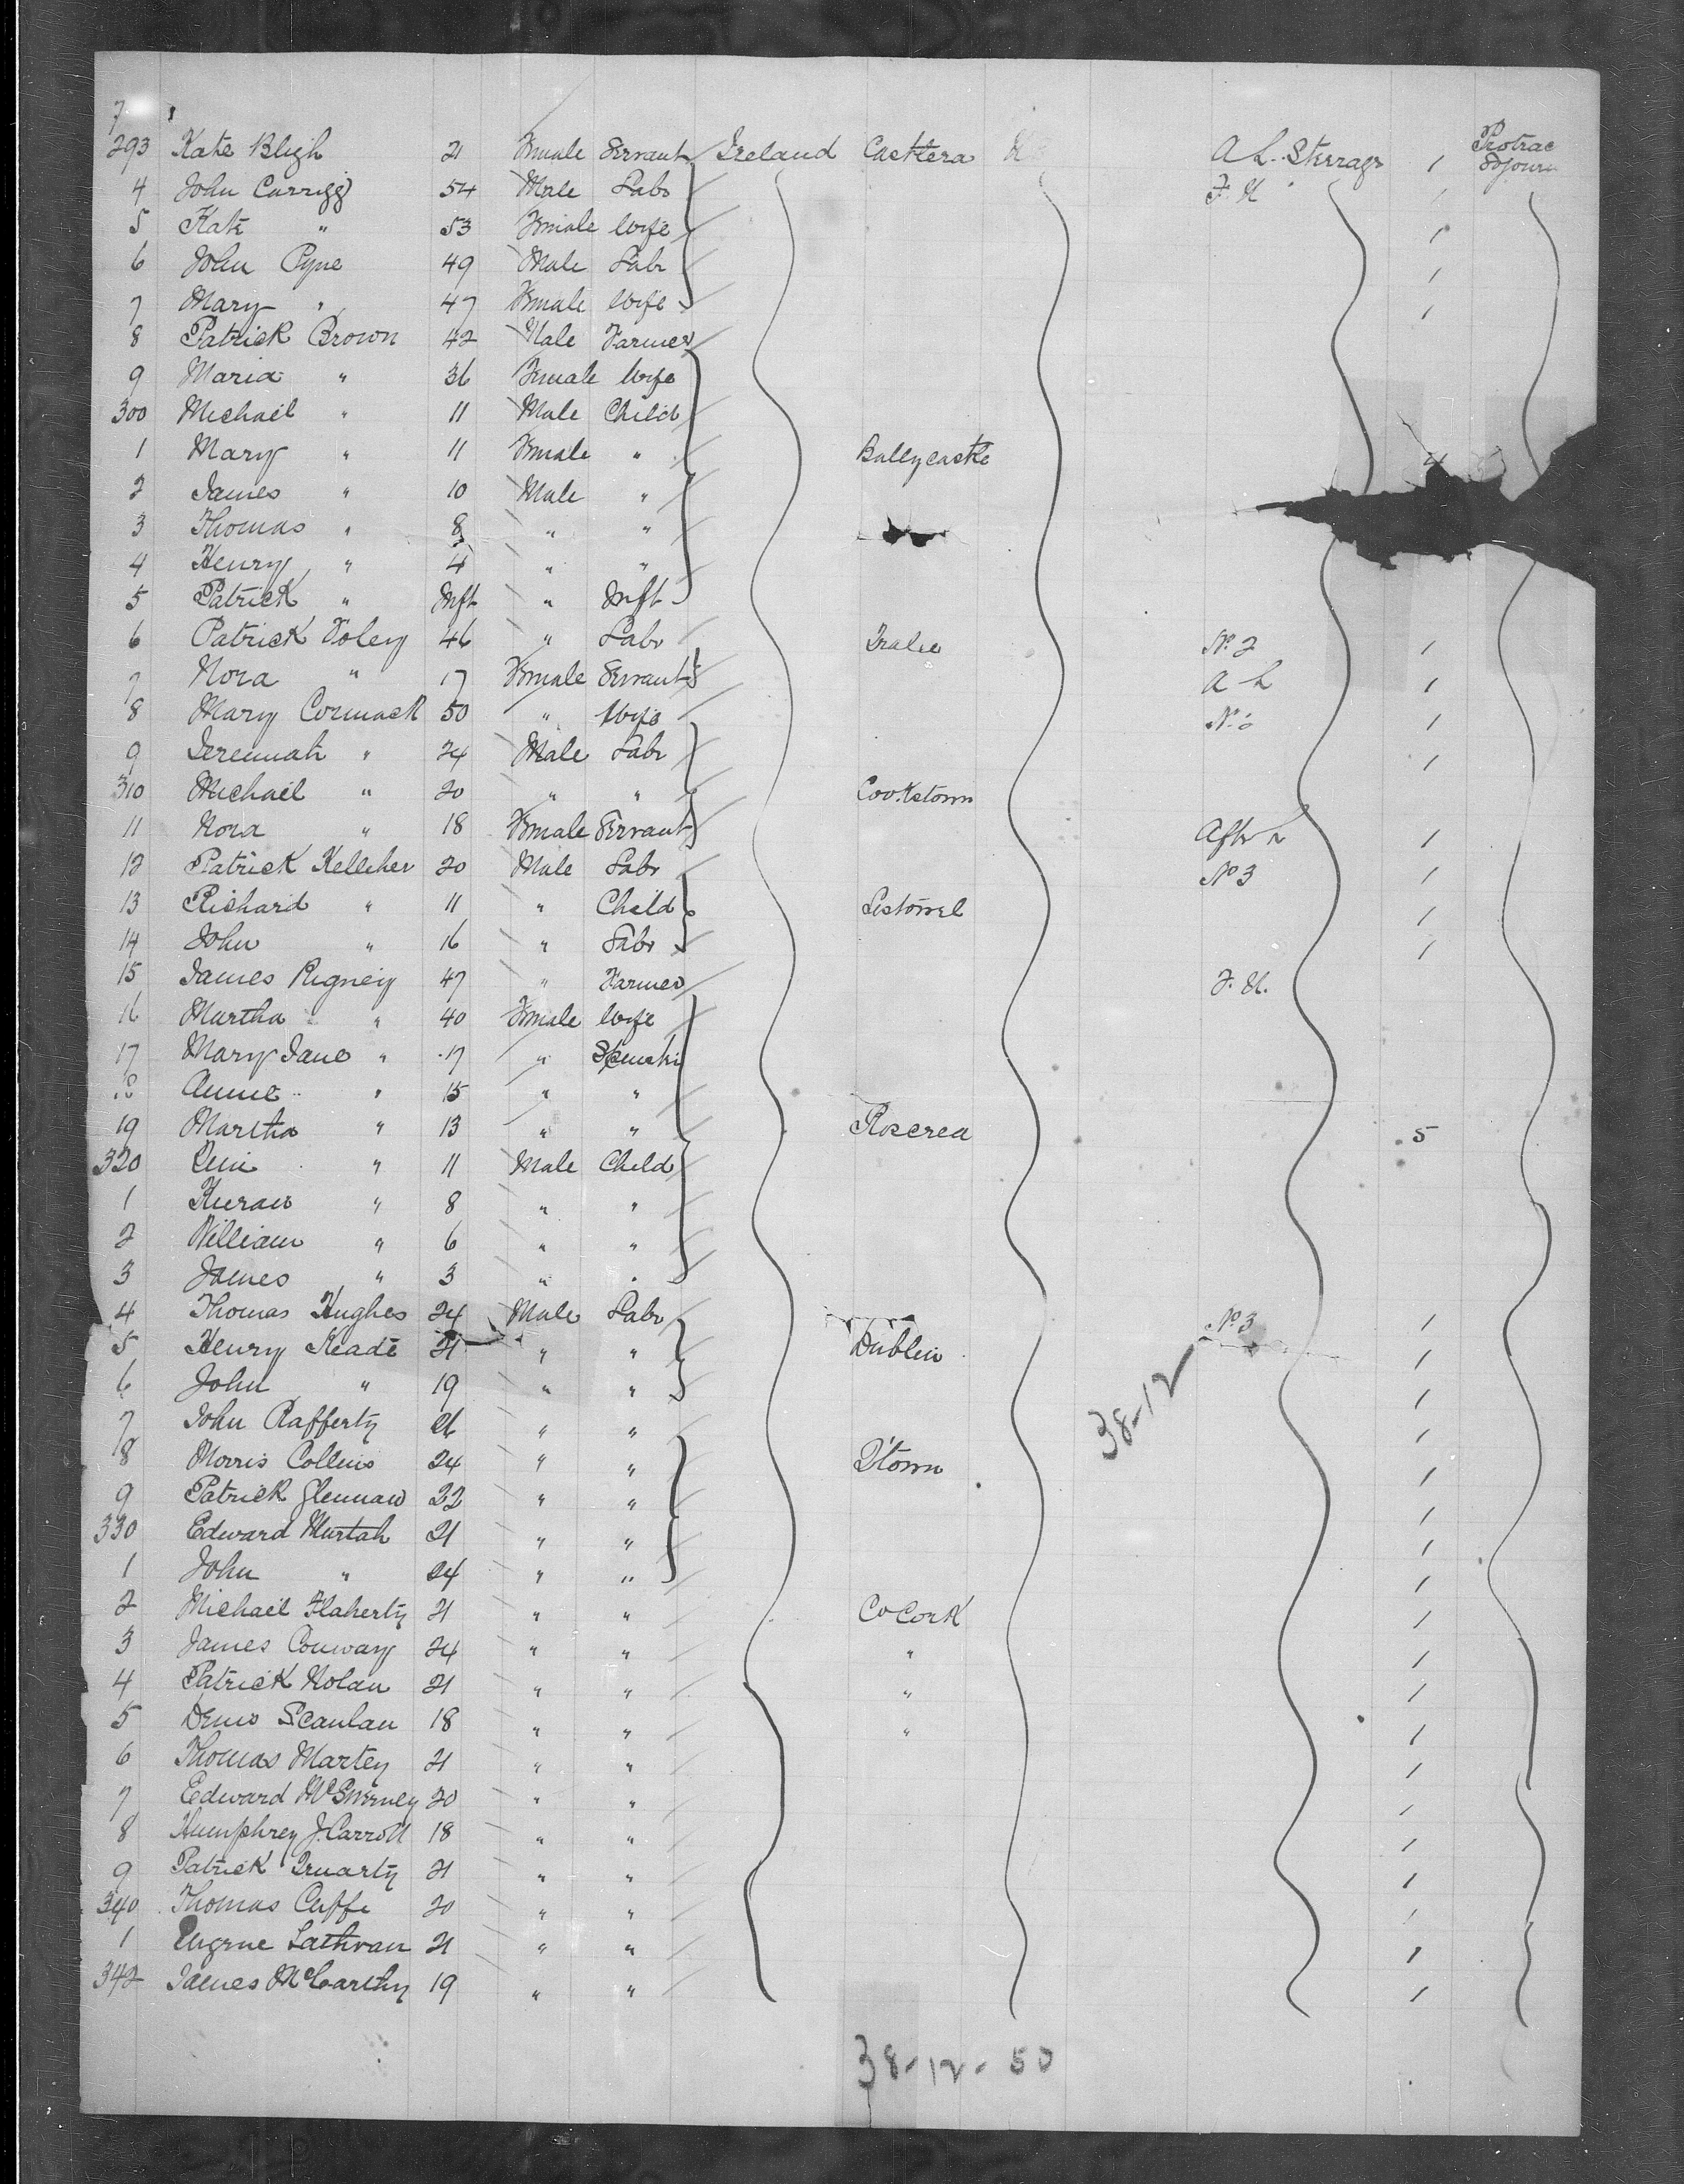 7
293 Kate Bligh 21 Female Servant Ireland Casttera A L. Sterrage 1 Protrac Sojourn
4 John Carrigg 54 Male Labr F. H 1
5 Kate " 53 Female Wife 1
6 John Pyne 49 Male Labr 1
7 Mary " 47 Female Wife 1
8 Patrick Brown 42 Male Farmer
9 Maria " 36 Female Wife
300 Michael " 11 Male Child
1 Mary " 11 Female " Ballycastle 4
2 James " 10 Male "
3 Thomas " 8 " "
4 Henry " 4 " "
5 Patrick " Inft " Inft
6 Patrick Foley 46 " Labr Tralee No 2 1
7 Nora " 17 Female Servant A L 1
8 Mary Cormack 50 " Wife No 1
9 Jeremiah " 24 Male Labr 1
310 Michael " 20 " " Cookstown
11 Nora " 18 Female Servant Aft 1
12 Patrick Kelleher 20 Male Labr No 3 1
13 Richard " 11 " Child Listowel 1
14 John " 16 " Labr 1
15 James Rigney 47 " Farmer F. H.
16 Martha " 40 Female Wife
17 Mary Jane " 17 "
18 Annie " 15 " "
19 Martha " 13 " " Roscrea 5
320 " 11 Male Child
1 Kieran " 8 " "
2 William " 6 " "
3 James " 3 " "
4 Thomas Hughes 24 Male Labr No 3 1
5 Henry Keade 21 " " Dublin 1
6 John " 19 " " 1
38-12
7 John Rafferty 21 " " 1
8 Morris Collins 24 " " Q'town 1
9 Patrick Glennan 22 " " 1
330 Edward Murtah 21 " " 1
1 John " 24 " " 1
2 Michael Flaherty 21 " " Co Cork 1
3 James Conway 24 " " " 1
4 Patrick Nolan 21 " " " 1
5 Denis Scanlan 18 " " " 1
6 Thomas Martey 21 " " 1
7 Edward 20 " " 1
8 Humphrey J. Carroll 18 " " 1
9 Patrick 21 " " 1
340 Thomas Cuffe 20 " " 1
1 Eugene 21 " " 1
342 James McCarthy 19 " " 1
38-12-50